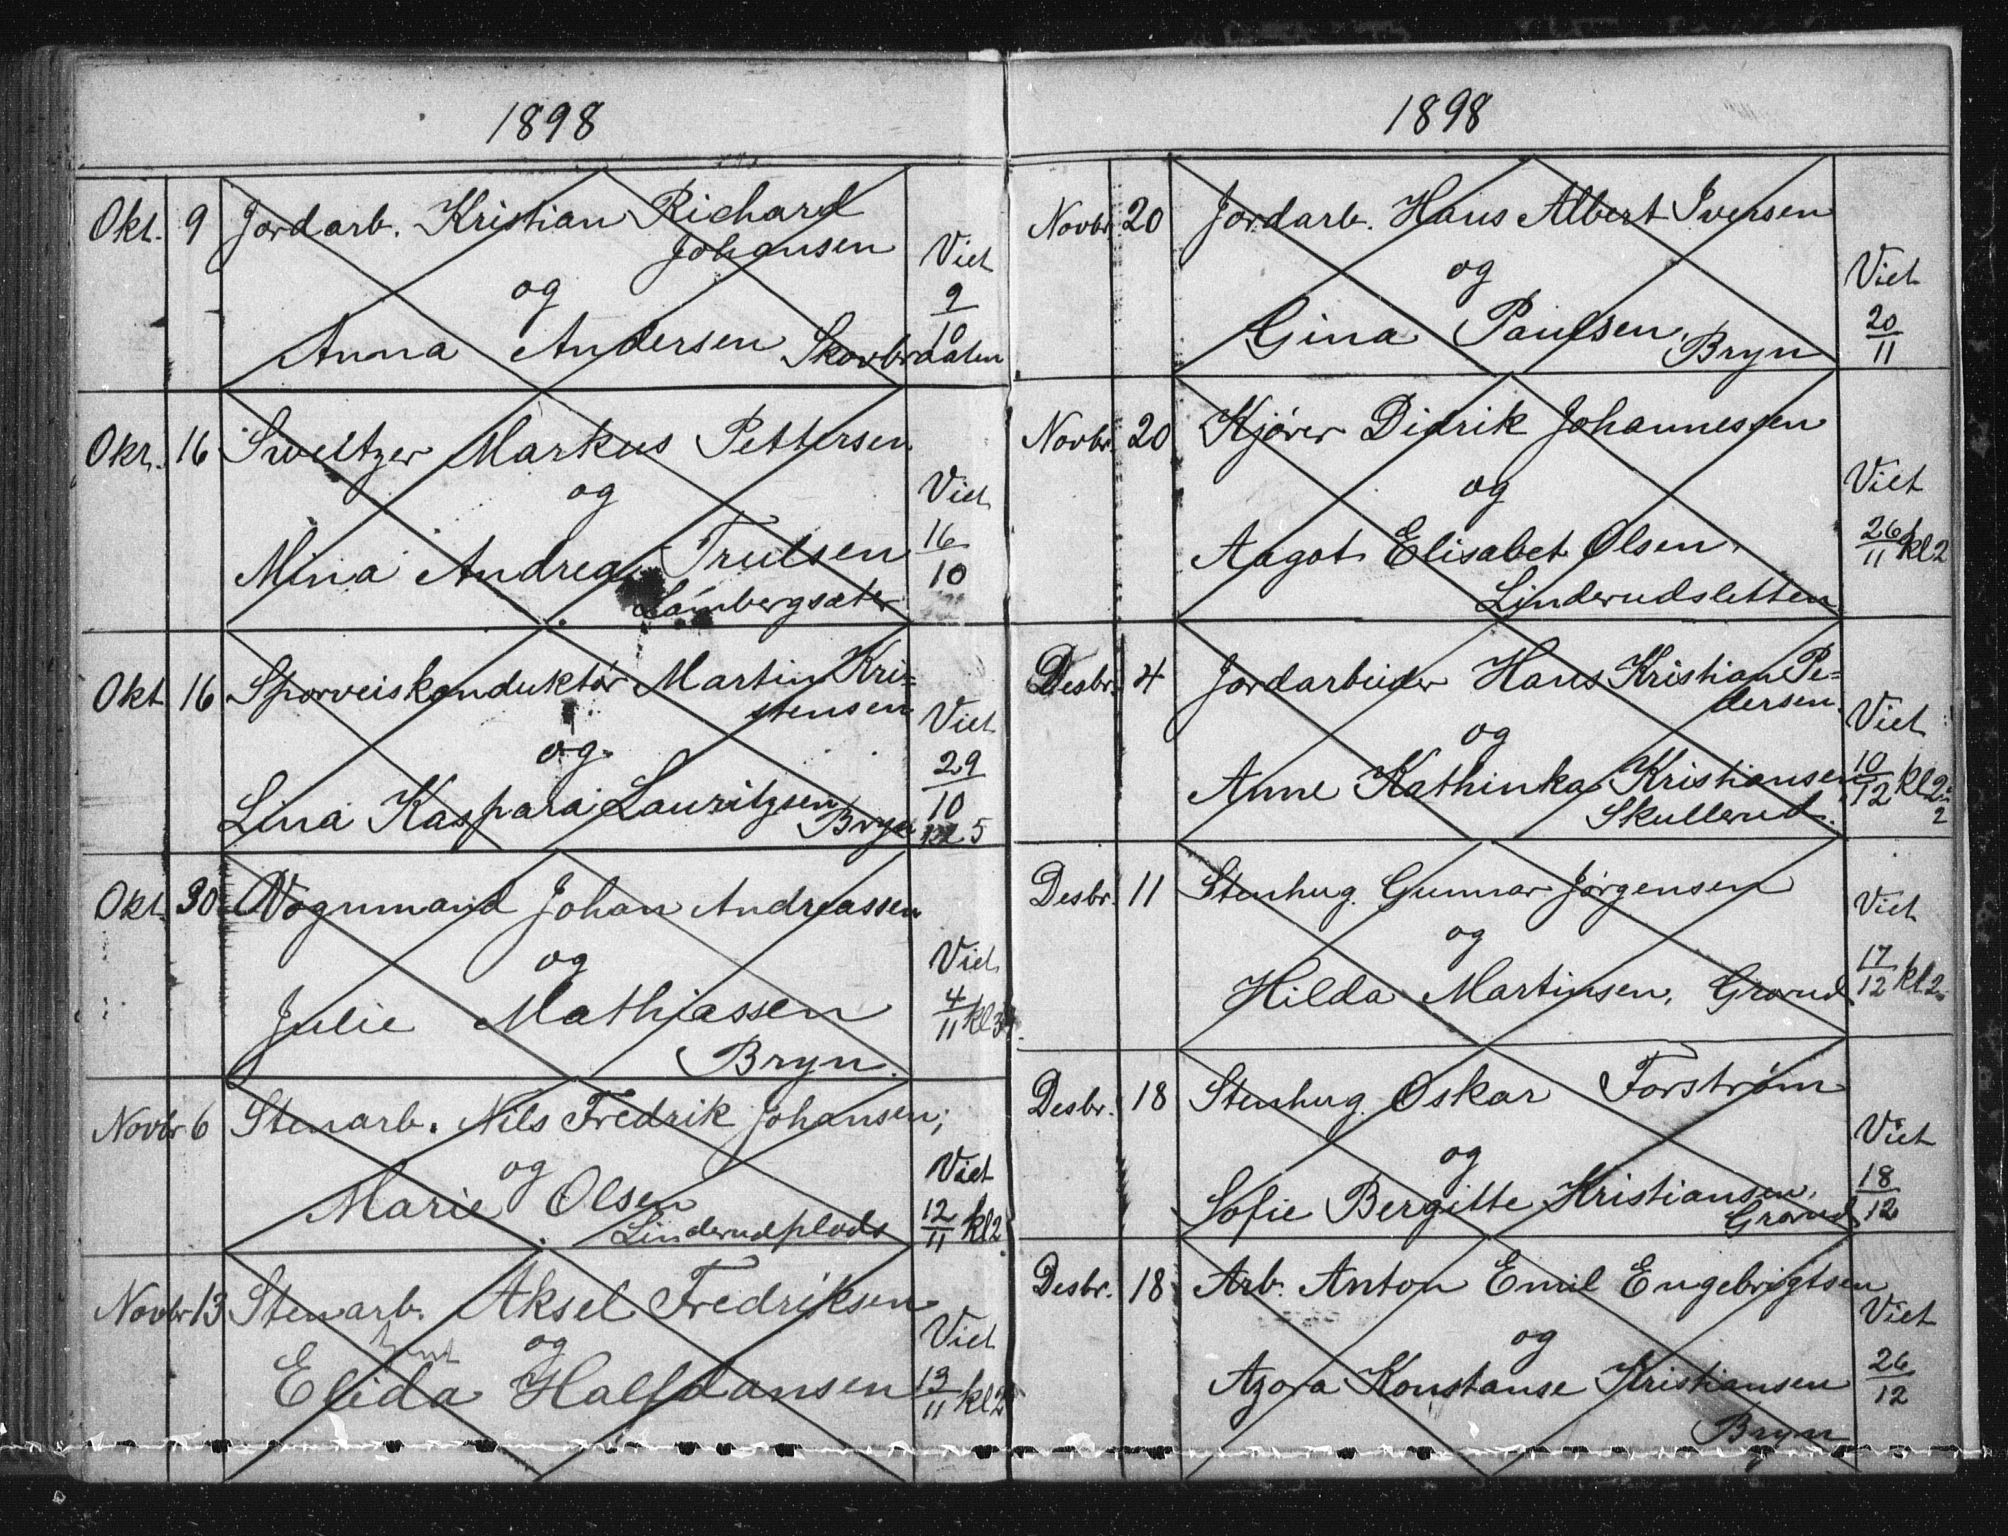 1898
Okt. 9 Jordarb. Kristian Richard
Johansen
og
Anna Andersen Skovbraaten
Viet
9
10
Okt. 16 Sweitzer Markus Pettersen
og
Mina Andrea Trulsen
Lambergsæter
Viet
16
10
Okt 16 Sporveiskonduktør Martin Kri=
stensen
og
Lina Kaspara Lauritzsen
Bryn
Viet
29
10
kl 5
Okt. 30 Vognmand Johan Andreassen
og
Julie Mathiassen
Bryn.
Viet
4
11 kl 3
Novbr 6 Stenarb. Nils Fredrik Johansen,
og
Marie Olsen
Linderudplads
Viet
12
11 kl 2
Novbr 13 Stenarb. Aksel Fredriksen
og
Elida Halfdansen
Viet
13
11 kl 2
1898
Novbr. 20 Jordarb. Hans Albert Iversen
og
Gina Paulsen,
Bryn
Viet
20
11
Novbr. 20 Kjører Didrik Johannessen
og
Aagot Elisabet Olsen,
Linderudsletten
Viet
26
11 kl 2
Desbr. 4 Jordarbeider Hans Kristian Pe=
dersen.
og
Anne Kathinka Kristiansen
Skullerud.
Viet
10
12 kl 2
2
Desbr. 11 Stenhug. Gunnar Jørgensen
og
Hilda Martinsen, Grorud
Viet
17
12 kl 2
Desbr. 18 Stenhug. Oskar Forstrøm
og
Sofie Bergitte Kristiansen,
Grorud
Viet
18
12
Desbr. 18 Arb. Anton Emil Engebrigtsen
og
Azora Konstanse Kristiansen
Bryn
Viet
26
12